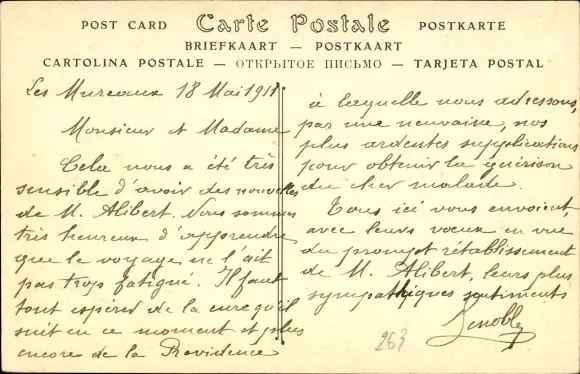 POST CARD Carte Postale POSTKARTE
BRIEFKAART — POSTKAART
CARTOLINA POSTALE — ОТКРЫТОЕ ПИСЬМО — TARJETA POSTAL
Les Mureaux 18 Mai 1911
Monsieur et Madame
Cela nous a été très
sensible d'avoir des nouvelles
de M. Alibert. Nous sommes
très heureux d'apprendre
que le voyage ne l'ait
pas trop fatigué. Il faut
tout espérer de la cure qu'il
suit en ce moment et plus
encore de la Providence
à laquelle nous adressons,
par une neuvaine, nos
plus ardentes supplications
pour obtenir la guérison
du cher malade.
Tous ici vous envoient,
avec leurs voeux en vue
du prompt rétablissement
de M. Alibert, leurs plus
sympathiques sentiments
Lenoble
263